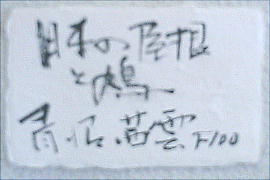 日本の屋根
と鳩
青沼茜雲 F100